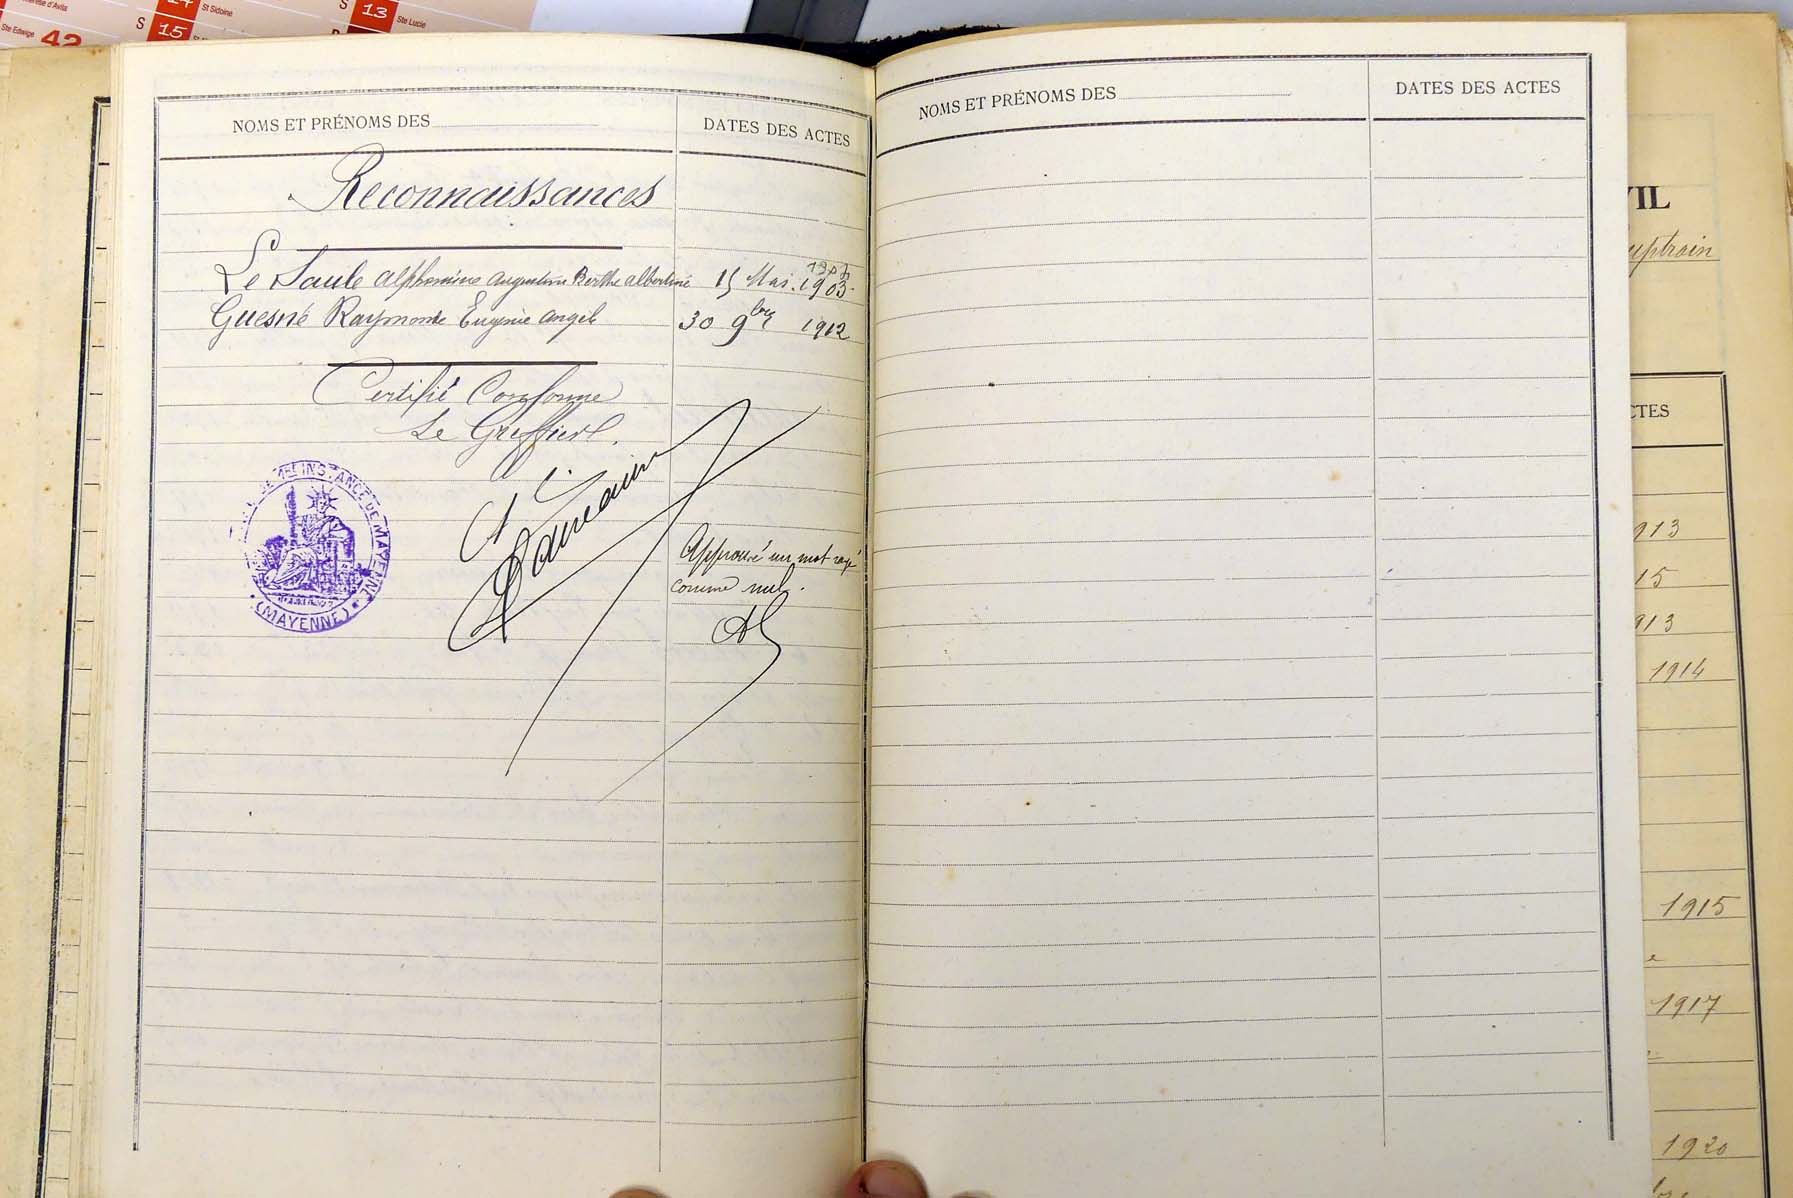 Ste Edwige 42
S 15
St Sidoine
S 13 Ste Lucie
NOMS ET PRÉNOMS DES
DATES DES ACTES
Reconnaissances
Le Saule Alphonsine Augustine Berthe Albertine 15 Mai 1903
Guesné Raymonde Eugénie Angèle 30 9bre 1912
Certifié Conforme
Le Greffier
Approuvé un mot rayé
comme nul.
INSTANCE DE MAYENNE
(MAYENNE)
NOMS ET PRÉNOMS DES
DATES DES ACTES
VIL
uptrain
CTES
913
15
913
1914
1915
1917
1920